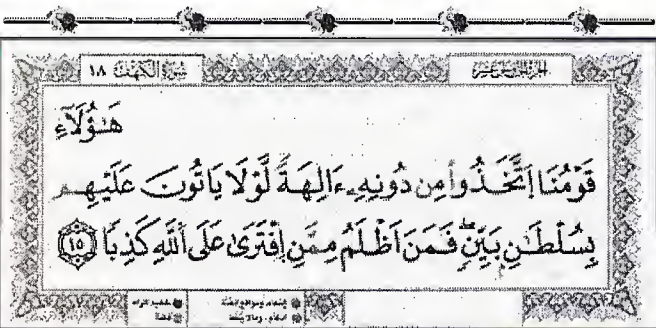 سُورَةُ الكَهْفِ ١٨
الجزء الخامس عشر
هَٰٓؤُلَآءِ
قَوْمُنَا اَتَّخَذُواْ مِن دُونِهِۦٓ ءَالِهَةً لَّوْلَا يَاتُونَ عَلَيْهِم
بِسُلْطَٰنٍ بَيِّنٍ فَمَنَ اَظْلَمُ مِمَّنِ اِفْتَرَىٰ عَلَى اَللَّهِ كَذِبًا ١٥